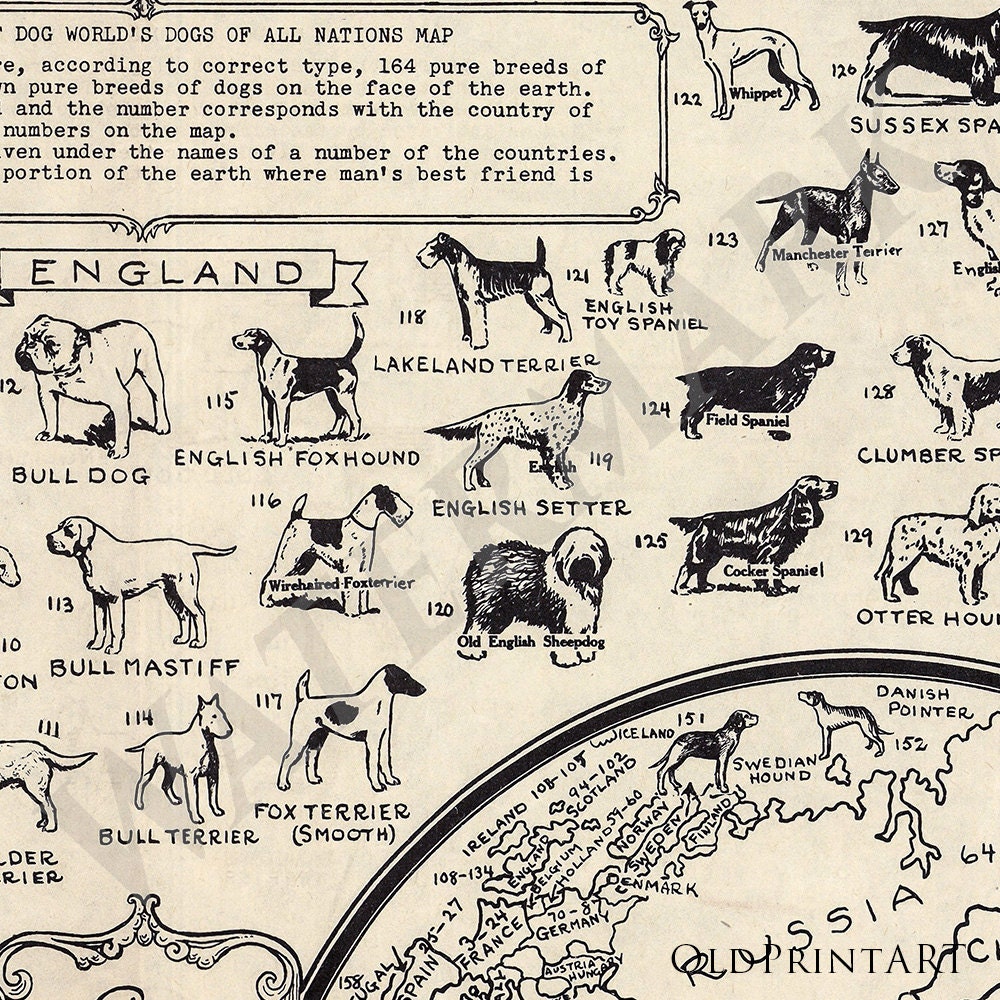 DOG WORLD'S DOGS OF ALL NATIONS MAP
according to correct type, 164 pure breeds of
pure breeds of dogs on the face of the earth.
and the number corresponds with the country of
numbers on the map.
under the names of a number of the countries.
portion of the earth where man's best friend is
122 Whippet
126
SUSSEX
123
Manchester Terrier
127
ENGLAND
118
LAKELAND TERRIER
121
ENGLISH
TOY SPANIEL
115
ENGLISH FOXHOUND
BULL DOG
124
Field Spaniel
128
CLUMBER
119
ENGLISH SETTER
116
Wirehaired Foxterrier
125
Cocker Spaniel
129
OTTER
113
BULL MASTIFF
120
Old English Sheepdog
111
114
BULL TERRIER
117
FOX TERRIER
(SMOOTH)
151
SWEDIAN
HOUND
DANISH
POINTER
152
ICELAND
94-102
SCOTLAND
IRELAND 108-108
59-60
NORWAY
SWEDEN
FINLAND
ENGLAND
BELGIUM
HOLLAND
108-134
DENMARK
70-87
GERMANY
FRANCE
25-27
SPAIN
158
AUSTRIA
HUNGARY
RUSSIA
64
WATERMARK
OLDPRINTART